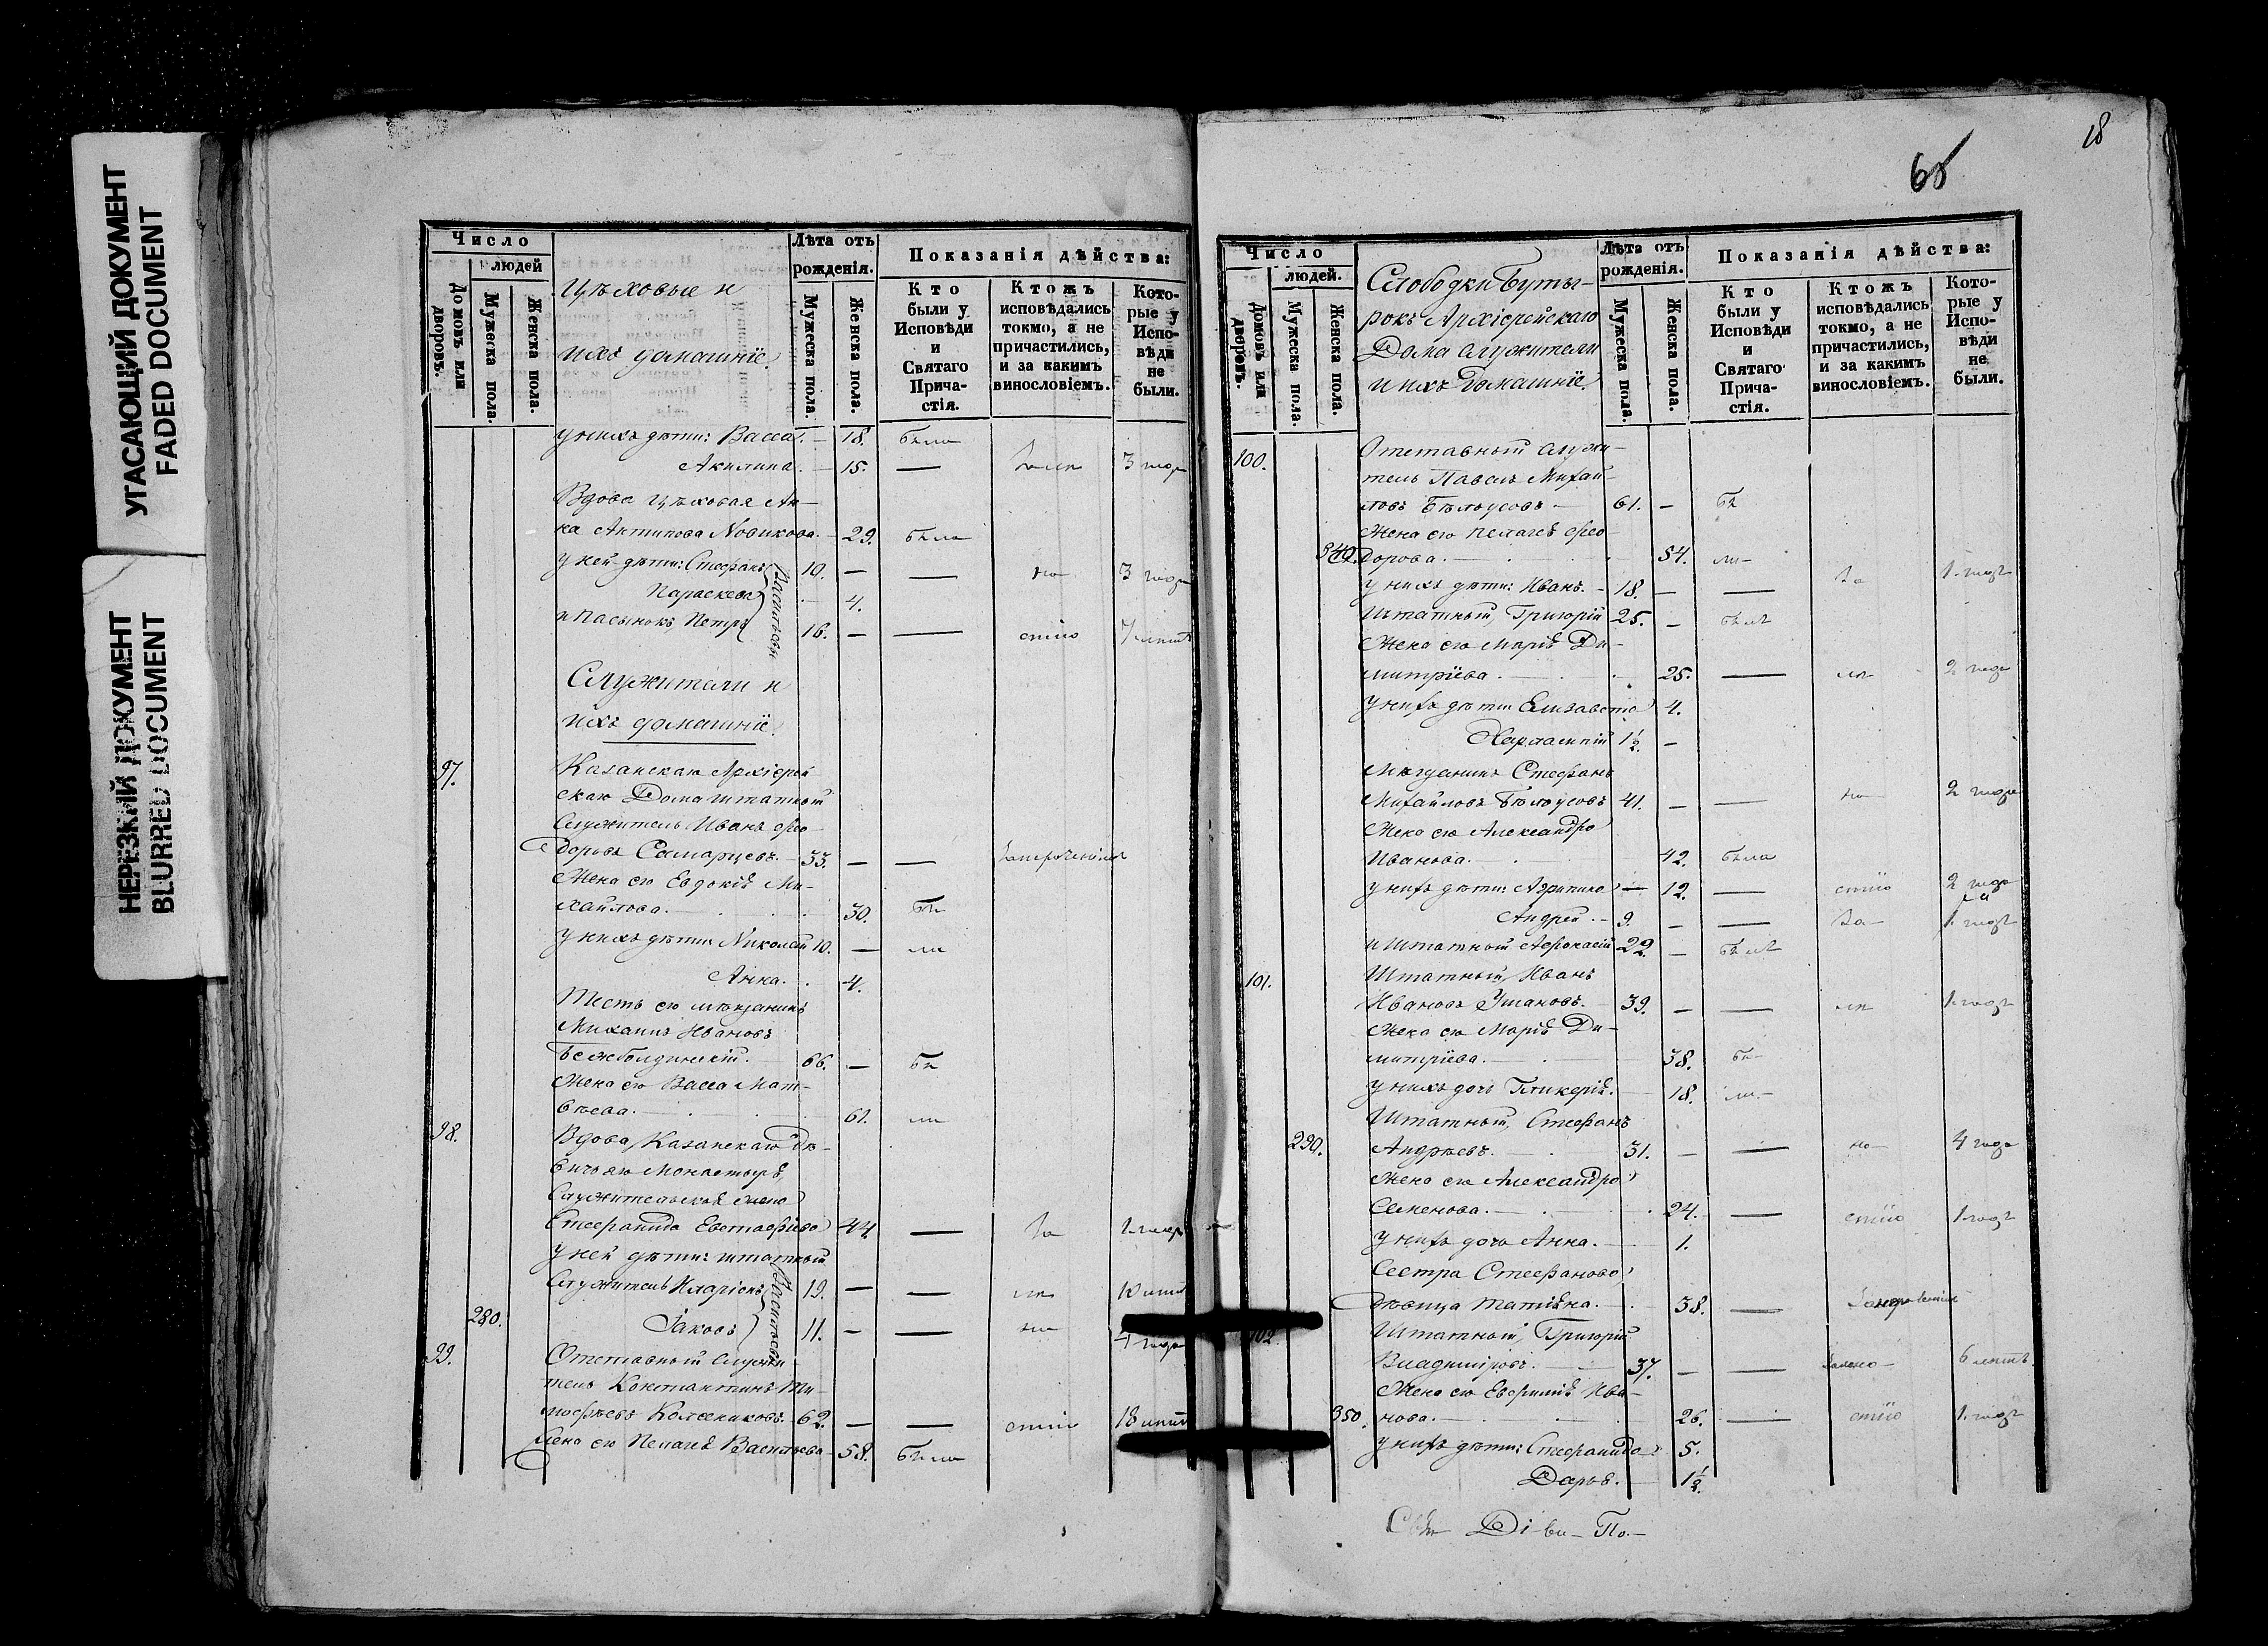 УГАСАЮЩИЙ ДОКУМЕНТ
FADED DOCUMENT
НЕРЕЗКИЙ ДОКУМЕНТ
BLURRED DOCUMENT
Число
людей
Домовъ или дворовъ.
Мужеска пола.
Женска пола.
Цѣховые и
ихъ домашніе
Лѣта отъ рожденія.
Мужеска пола.
Женска пола.
Показанія дѣйства:
Кто были у Исповѣди и Святаго Прича-стія.
Ктожъ исповѣдались токмо, а не причастились, и за какимъ винословіемъ.
Кото-рые у Испо-вѣди не были.
у нихъ дѣти: Васса. — 18. была
Акилина. — 15. — 3 года
Вдова цѣховая Ан-
на Антипова Новикова. — 29. была
у ней дѣти: Стефанъ 10. — — 3 года
Параскева 4.
и пасынокъ Петръ 16. — — 7 лѣтъ
Васильевы
Служители и
ихъ домашніе.
97. Казанскаго Архіерей-
скаго Дома штатный
Служитель Иванъ Ѳео-
доровъ Самарцевъ. — 33. — —
Жена его Евдокія Ми-
хайлова. 30.
у нихъ дѣти: Николай 10. —
Анна. 4.
Тесть его мѣщанинъ
Михаилъ Ивановъ
66. —
Жена его Васса Мат-
вѣева. 61.
98. Вдова, Казанскаго Дѣ-
вичьяго Монастыря,
Служительская жена
Стефанида Евстафіева 44 —
у ней дѣти: штатный
Служитель Иларіонъ 19. — —
280. Іаковъ 11. — — 4 года
Васильевы
99. Отставный служи-
тель Константинъ Ти-
мофѣевъ Колесниковъ. 62. — — 18 лѣтъ
Жена его Пелагея Васильева 58. была
18
Число
людей.
Домовъ или дворовъ.
Мужеска пола
Женска пола.
Слободки Буты-
рокъ Архіерейскаго
Дома служители
и ихъ домашніе.
Лѣта отъ рожденія.
Мужеска пола.
Женска пола.
Показанія дѣйства:
Кто были у Исповѣди и Святаго Прича-стія.
Ктожъ исповѣдались токмо, а не причастились, и за какимъ винословіемъ.
Кото-рые у Испо-вѣди не были.
100. Отставный служи-
тель Павелъ Михай-
ловъ Бѣлоусовъ — 61. —
Жена его Пелагея Ѳео-
340. дорова. 54.
у нихъ дѣти: Иванъ. — 18. — — 1. годъ
Штатный, Григорій 25. — былъ
Жена его Марія Ди-
митріева 25. — 2 года
у нихъ дѣти Елизавета 4.
Харлампій 1½. —
Мѣщанинъ Стефанъ
Михайловъ Бѣлоусовъ 41. — — 2 года
Жена его Александра
Иванова. 42. была
у нихъ дѣти: Агрипина — 12. — 2 года
Андрей — 9. — — 1. годъ
и штатный Аѳанасій 22. — былъ
101. Штатный, Иванъ
Ивановъ Ушаковъ. 39. — — 1. годъ
Жена его Марія Ди-
митріева. 38.
у нихъ дочь Гликерія. 18.
Штатный, Стефанъ
290. Андреевъ. 31. — — 4 года
Жена его Александра
Семенова. 24. — 1. годъ
у нихъ дочь Анна. 1.
Сестра Стефанова
дѣвица Татіяна. 38. —
102. Штатный, Григорій
Владиміровъ. 37. — — 6 лѣтъ.
Жена его Евфимія Ива-
350. нова. 26. — 1. годъ
у нихъ дѣти: Стефанида 5.
Дарья. 1½.